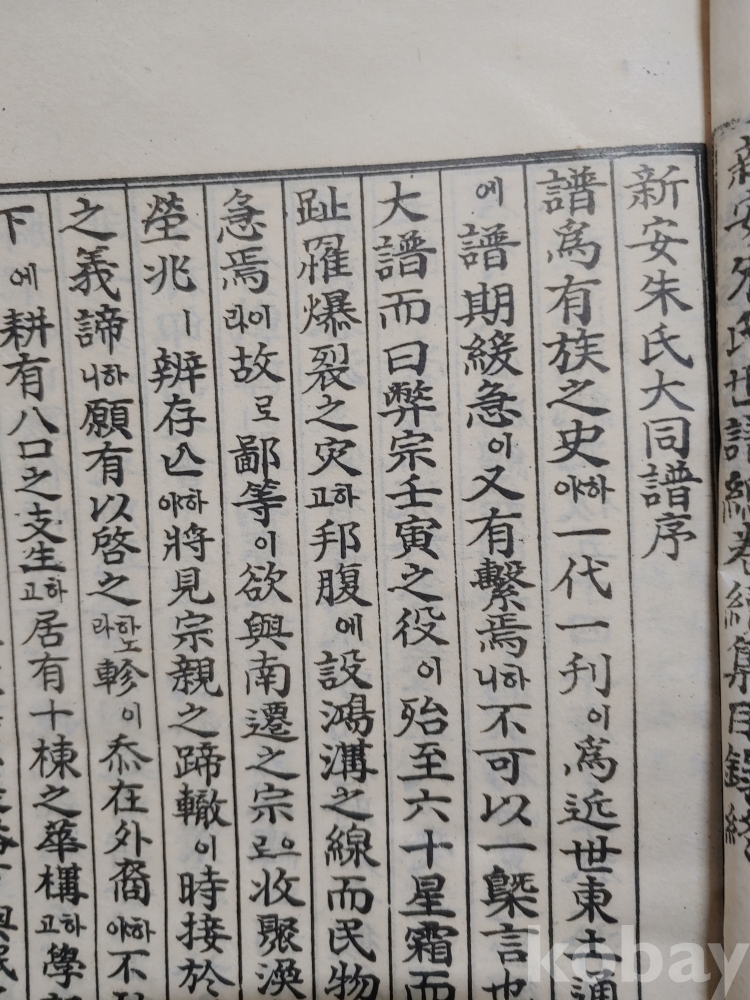 新安朱氏大同譜序
譜爲有族之史하야一代一刊이爲近世東土通
에譜期緩急이又有繫焉하니不可以一槩言也
大譜而曰弊宗壬寅之役이殆至六十星霜而
趾罹爆裂之灾하고邦腹에設鴻溝之線而民物
急焉이라故로鄙等이欲與南遷之宗으로收聚渙
塋兆ㅣ辨存亾하야將見宗親之蹄轍이時接於
之義諦하니願有以啓之하노라軫이忝在外裔하야不
下에耕有八口之支生하고居有十棟之華構하고學
kobay